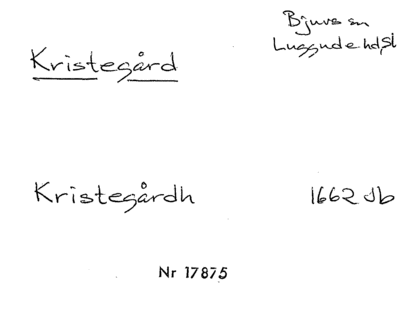 Kristegård
Bjuvs sn
Luggude hd, Sk
Kristegårdh 1662 Jb
Nr 17875